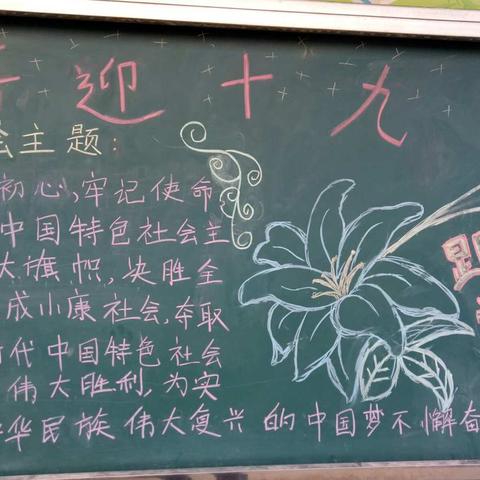 迎十九
会主题：
初心,牢记使命,
中国特色社会主
大旗帜,决胜全
成小康社会,夺取
时代中国特色社会
伟大胜利,为实
中华民族伟大复兴的中国梦不懈奋